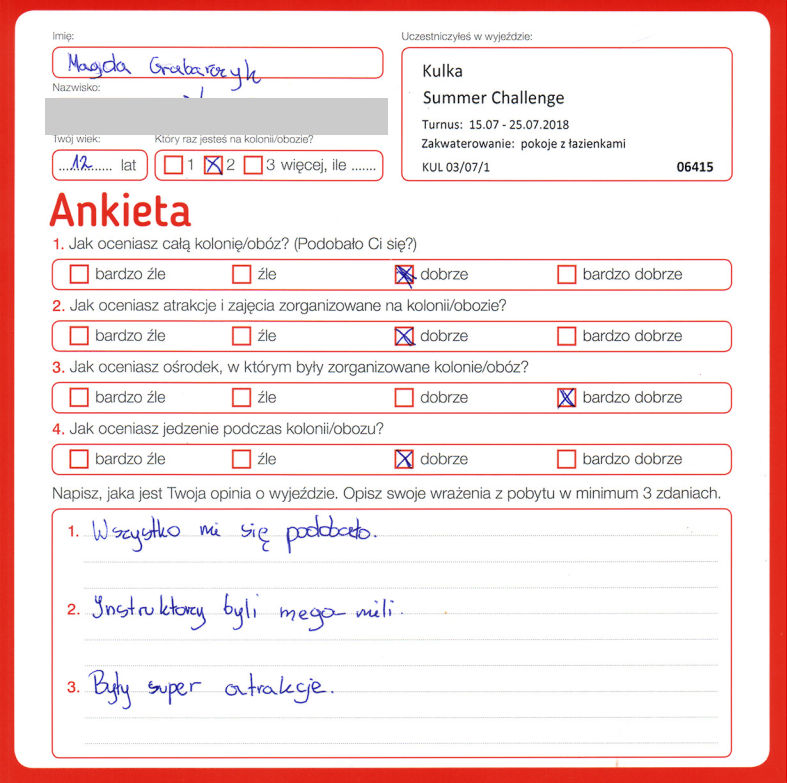 Imię:
Magda Grabarczyk
Nazwisko:
Twój wiek:
12 lat
Który raz jesteś na kolonii/obozie?
1 2 3 więcej, ile .......
Uczestniczyłeś w wyjeździe:
Kulka
Summer Challenge
Turnus: 15.07 - 25.07.2018
Zakwaterowanie: pokoje z łazienkami
KUL 03/07/1 06415
Ankieta
1. Jak oceniasz całą kolonię/obóz? (Podobało Ci się?)
bardzo źle źle dobrze bardzo dobrze
2. Jak oceniasz atrakcje i zajęcia zorganizowane na kolonii/obozie?
bardzo źle źle dobrze bardzo dobrze
3. Jak oceniasz ośrodek, w którym były zorganizowane kolonie/obóz?
bardzo źle źle dobrze bardzo dobrze
4. Jak oceniasz jedzenie podczas kolonii/obozu?
bardzo źle źle dobrze bardzo dobrze
Napisz, jaka jest Twoja opinia o wyjeździe. Opisz swoje wrażenia z pobytu w minimum 3 zdaniach.
1. Wszystko mi się podobało.
2. Instruktorzy byli mega mili.
3. Były super atrakcje.